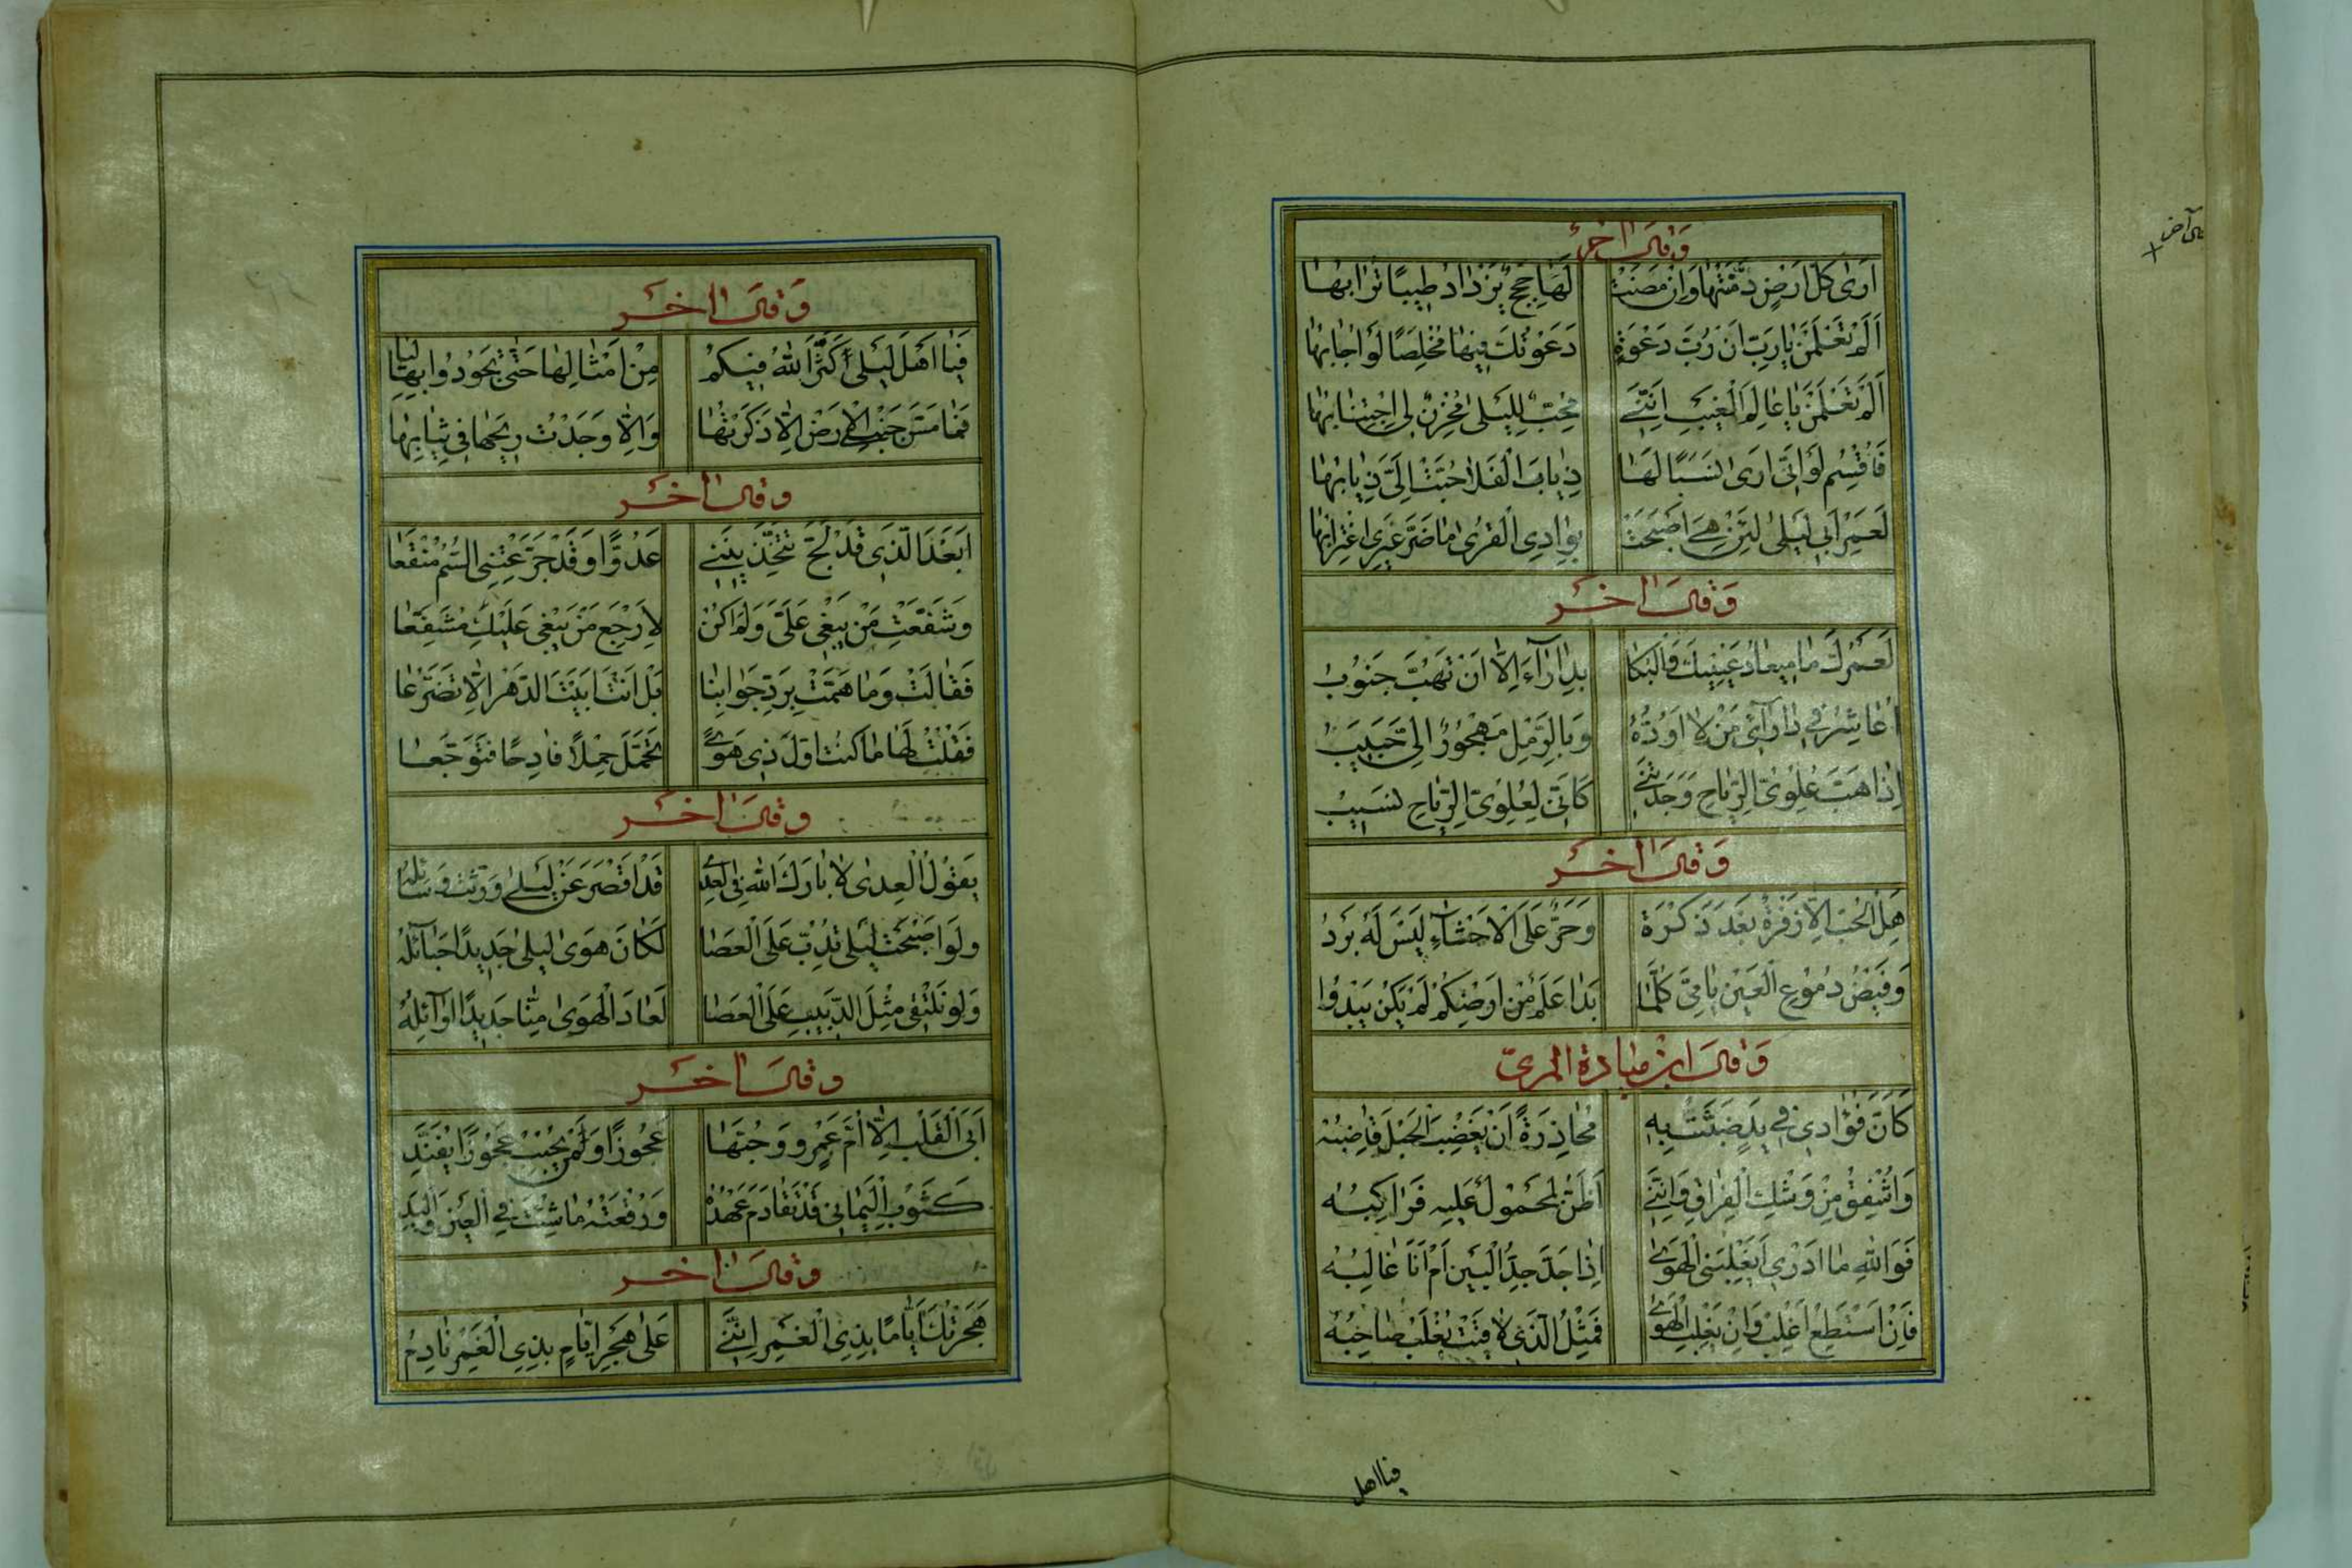 وَقَالَ اٰخَرُ
اَرٰى كُلَّ اَرْضٍ دَمَّنَتْهَا وَاِنْ مَضَتْ لَهَا حِجَجٌ يَزْدَادُ طِيبًا تُرَابُهَا
اَلَمْ تَعْلَمَنْ يَارَبِّ اَنْ رُبَّ دَعْوَةٍ دَعَوْتُكَ فِيهَا مُخْلِصًا لَوْ اُجَابُهَا
اَلَمْ تَعْلَمَنْ يَا عَالِمَ الْغَيْبِ اَنَّنِي مُحِبٌّ لِلَيْلٰى مُخْزِنٌ لِي اجْتِنَابُهَا
فَاُقْسِمُ لَوْ اَنِّي اَرٰى نَسَبًا لَهَا ذِيَابَ الْفَلَا حُبَّتْ اِلَيَّ ذِيَابُهَا
لَعَمْرُ اَبِي لَيْلٰى لَئِنْ هِيَ اَصْبَحَتْ بِوَادِي الْقُرٰى مَا ضَرَّ غَيْرِي اغْتِرَابُهَا
وَقَالَ اٰخَرُ
لَعَمْرُكَ مَا مِيعَادُ عَيْنَيْكَ وَالْبُكَا بِدَارَآءَ اِلَّا اَنْ تَهُبَّ جَنُوبُ
اُعَاشِرُ فِي دَارَآءَ مَنْ لَا اَوَدُّهُ وَبِالرَّمْلِ مَهْجُورٌ اِلَيَّ حَبِيبُ
اِذَا هَبَّ عُلْوِيُّ الرِّيَاحِ وَجَدْتُنِي كَاَنِّي لِعُلْوِيِّ الرِّيَاحِ نَسِيبُ
وَقَالَ اٰخَرُ
هَلِ الْحُبُّ اِلَّا زَفْرَةٌ بَعْدَ زَفْرَةٍ وَحَرٌّ عَلَى الْاَحْشَآءِ لَيْسَ لَهُ بَرْدُ
وَفَيْضُ دُمُوعِ الْعَيْنِ يَا مَيَّ كُلَّمَا بَدَا عَلَمٌ مِنْ اَرْضِكُمْ لَمْ يَكُنْ يَبْدُوا
وَقَالَ ابْنُ مَيَّادَةَ الْمُرِّيّ
كَاَنَّ فُؤَادِي فِي يَدٍ ضَبَثَتْ بِهِ مُحَاذِرَةً اَنْ يَقْضِبَ الْحَبْلَ قَاضِبُهْ
وَاُشْفِقُ مِنْ وَشْكِ الْفِرَاقِ وَاِنَّنِي اَظُنُّ لَمَحْمُولٌ عَلَيْهِ فَرَاكِبُهْ
فَوَاللّٰهِ مَا اَدْرِي اَيَغْلِبُنِي الْهَوٰى اِذَا جَدَّ جِدُّ الْبَيْنِ اَمْ اَنَا غَالِبُهْ
فَاِنْ اَسْتَطِعْ اَغْلِبْ وَاِنْ يَغْلِبِ الْهَوٰى فَمِثْلُ الَّذِي لَاقَيْتُ يُغْلَبُ صَاحِبُهْ
فيا اهل
وَقَالَ اٰخَرُ
فَيَا اَهْلَ لَيْلٰى اَكْثَرَ اللّٰهُ فِيكُمْ مِنْ اَمْثَالِهَا حَتّٰى تَجُودُوا بِهَا لِيَا
فَمَا مَسَّ جَنْبِي الْاَرْضَ اِلَّا ذَكَرْتُهَا وَاِلَّا وَجَدْتُ رِيحَهَا فِي ثِيَابِهَا
وَقَالَ اٰخَرُ
اَبَعْدَ الَّذِي قَدْ لَجَّ تَتَّخِذِينَنِي عَدُوًّا وَقَدْ جَرَّعْتِنِي السُّمَّ مُنْقَعًا
وَشَفَّعْتِ مَنْ يَبْغِي عَلَيَّ وَلَمْ اَكُنْ لِاَرْجِعَ مَنْ يَبْغِي عَلَيْكِ مُشَفَّعًا
فَقَالَتْ وَمَا هَمَّتْ بِرَدِّ جَوَابِنَا بَلْ اَنْتَ اَبَيْتَ الدَّهْرَ اِلَّا تَضَرُّعَا
فَقُلْتُ لَهَا مَا كُنْتُ اَوَّلَ ذِي هَوًى تَحَمَّلَ حِمْلًا فَادِحًا فَتَوَجَّعَا
وَقَالَ اٰخَرُ
يَقُولُ الْعِدٰى لَا بَارَكَ اللّٰهُ فِي الْعِدٰى قَدْ اَقْصَرَ عَنْ لَيْلٰى وَرَثَّتْ وَسَائِلُهْ
وَلَوْ اَصْبَحَتْ لَيْلٰى تَدُبُّ عَلَى الْعَصَا لَكَانَ هَوٰى لَيْلٰى جَدِيدًا حَبَآئِلُهْ
وَلَوْ نَلْتَقِي مِثْلَ الدَّبِيبِ عَلَى الْعَصَا لَعَادَ الْهَوٰى مِنَّا جَدِيدًا اَوَآئِلُهْ
وَقَالَ اٰخَرُ
اَبَى الْقَلْبُ اِلَّا اُمَّ عَمْرٍو وَحُبَّهَا عَجُوزًا وَمَنْ يُحْبِبْ عَجُوزًا يُفَنَّدِ
كَثَوْبِ الْيَمَانِي قَدْ تَقَادَمَ عَهْدُهُ وَرُقْعَتُهُ مَا شِئْتَ فِي الْعَيْنِ وَالْيَدِ
وَقَالَ اٰخَرُ
هَجَرْتُكَ اَيَّامًا بِذِي الْغَمْرِ اِنَّنِي عَلٰى هَجْرِ اَيَّامٍ بِذِي الْغَمْرِ نَادِمُ